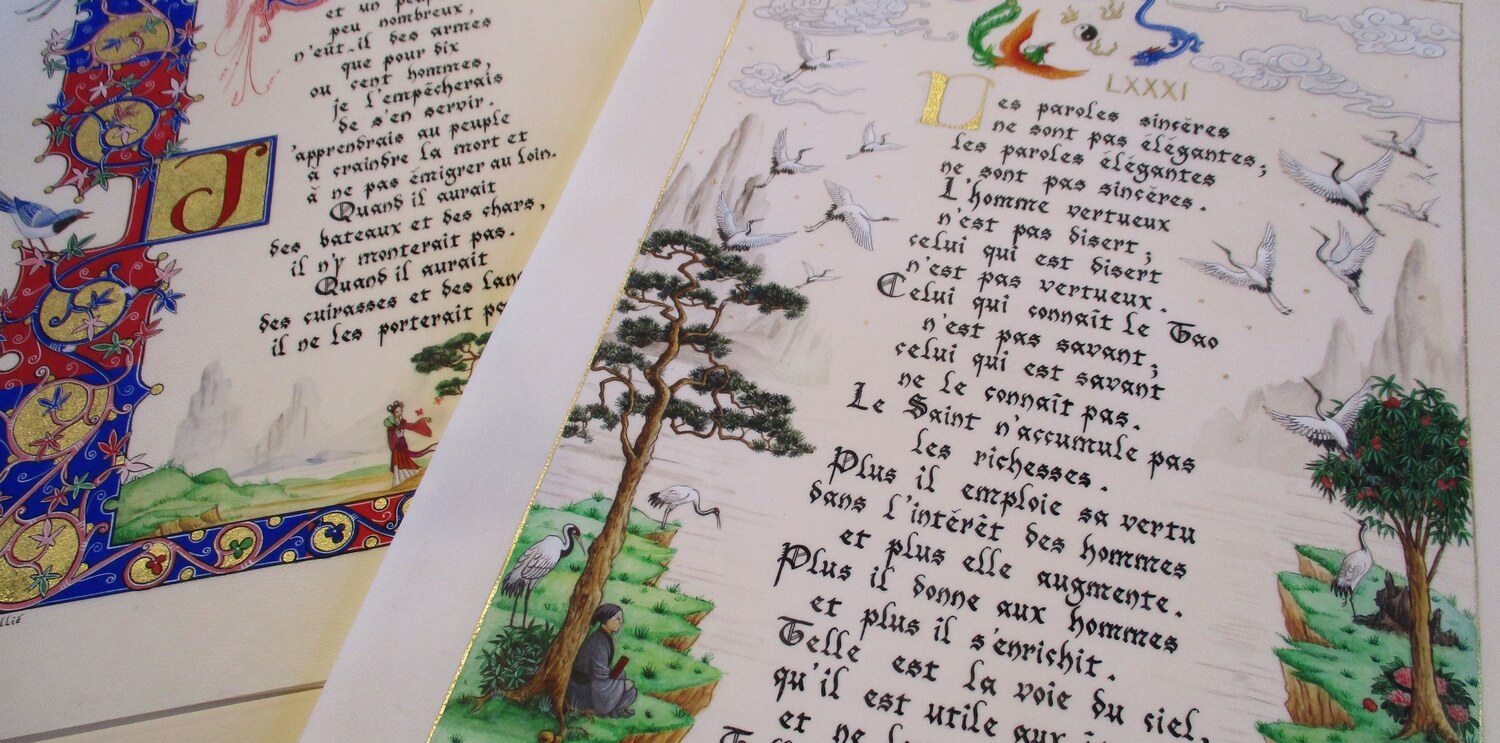 et un
peu nombreux,
n'eut-il des armes
que pour dix
ou cent hommes,
je l'empêcherais
de s'en servir.
J'apprendrais au peuple
à craindre la mort et
à ne pas émigrer au loin.
Quand il aurait
des bateaux et des chars,
il n'y monterait pas.
Quand il aurait
des cuirasses et des
il ne les porterait
LXXXI
Les paroles sincères
ne sont pas élégantes;
les paroles élégantes
ne sont pas sincères.
L'homme vertueux
n'est pas disert;
celui qui est disert
n'est pas vertueux.
Celui qui connaît le Tao
n'est pas savant;
celui qui est savant
ne le connaît pas.
Le Saint n'accumule pas
les richesses.
Plus il emploie sa vertu
dans l'intérêt des hommes
et plus elle augmente.
Plus il donne aux hommes
et plus il s'enrichit.
Telle est la voie du ciel,
qu'il est utile aux
et ne